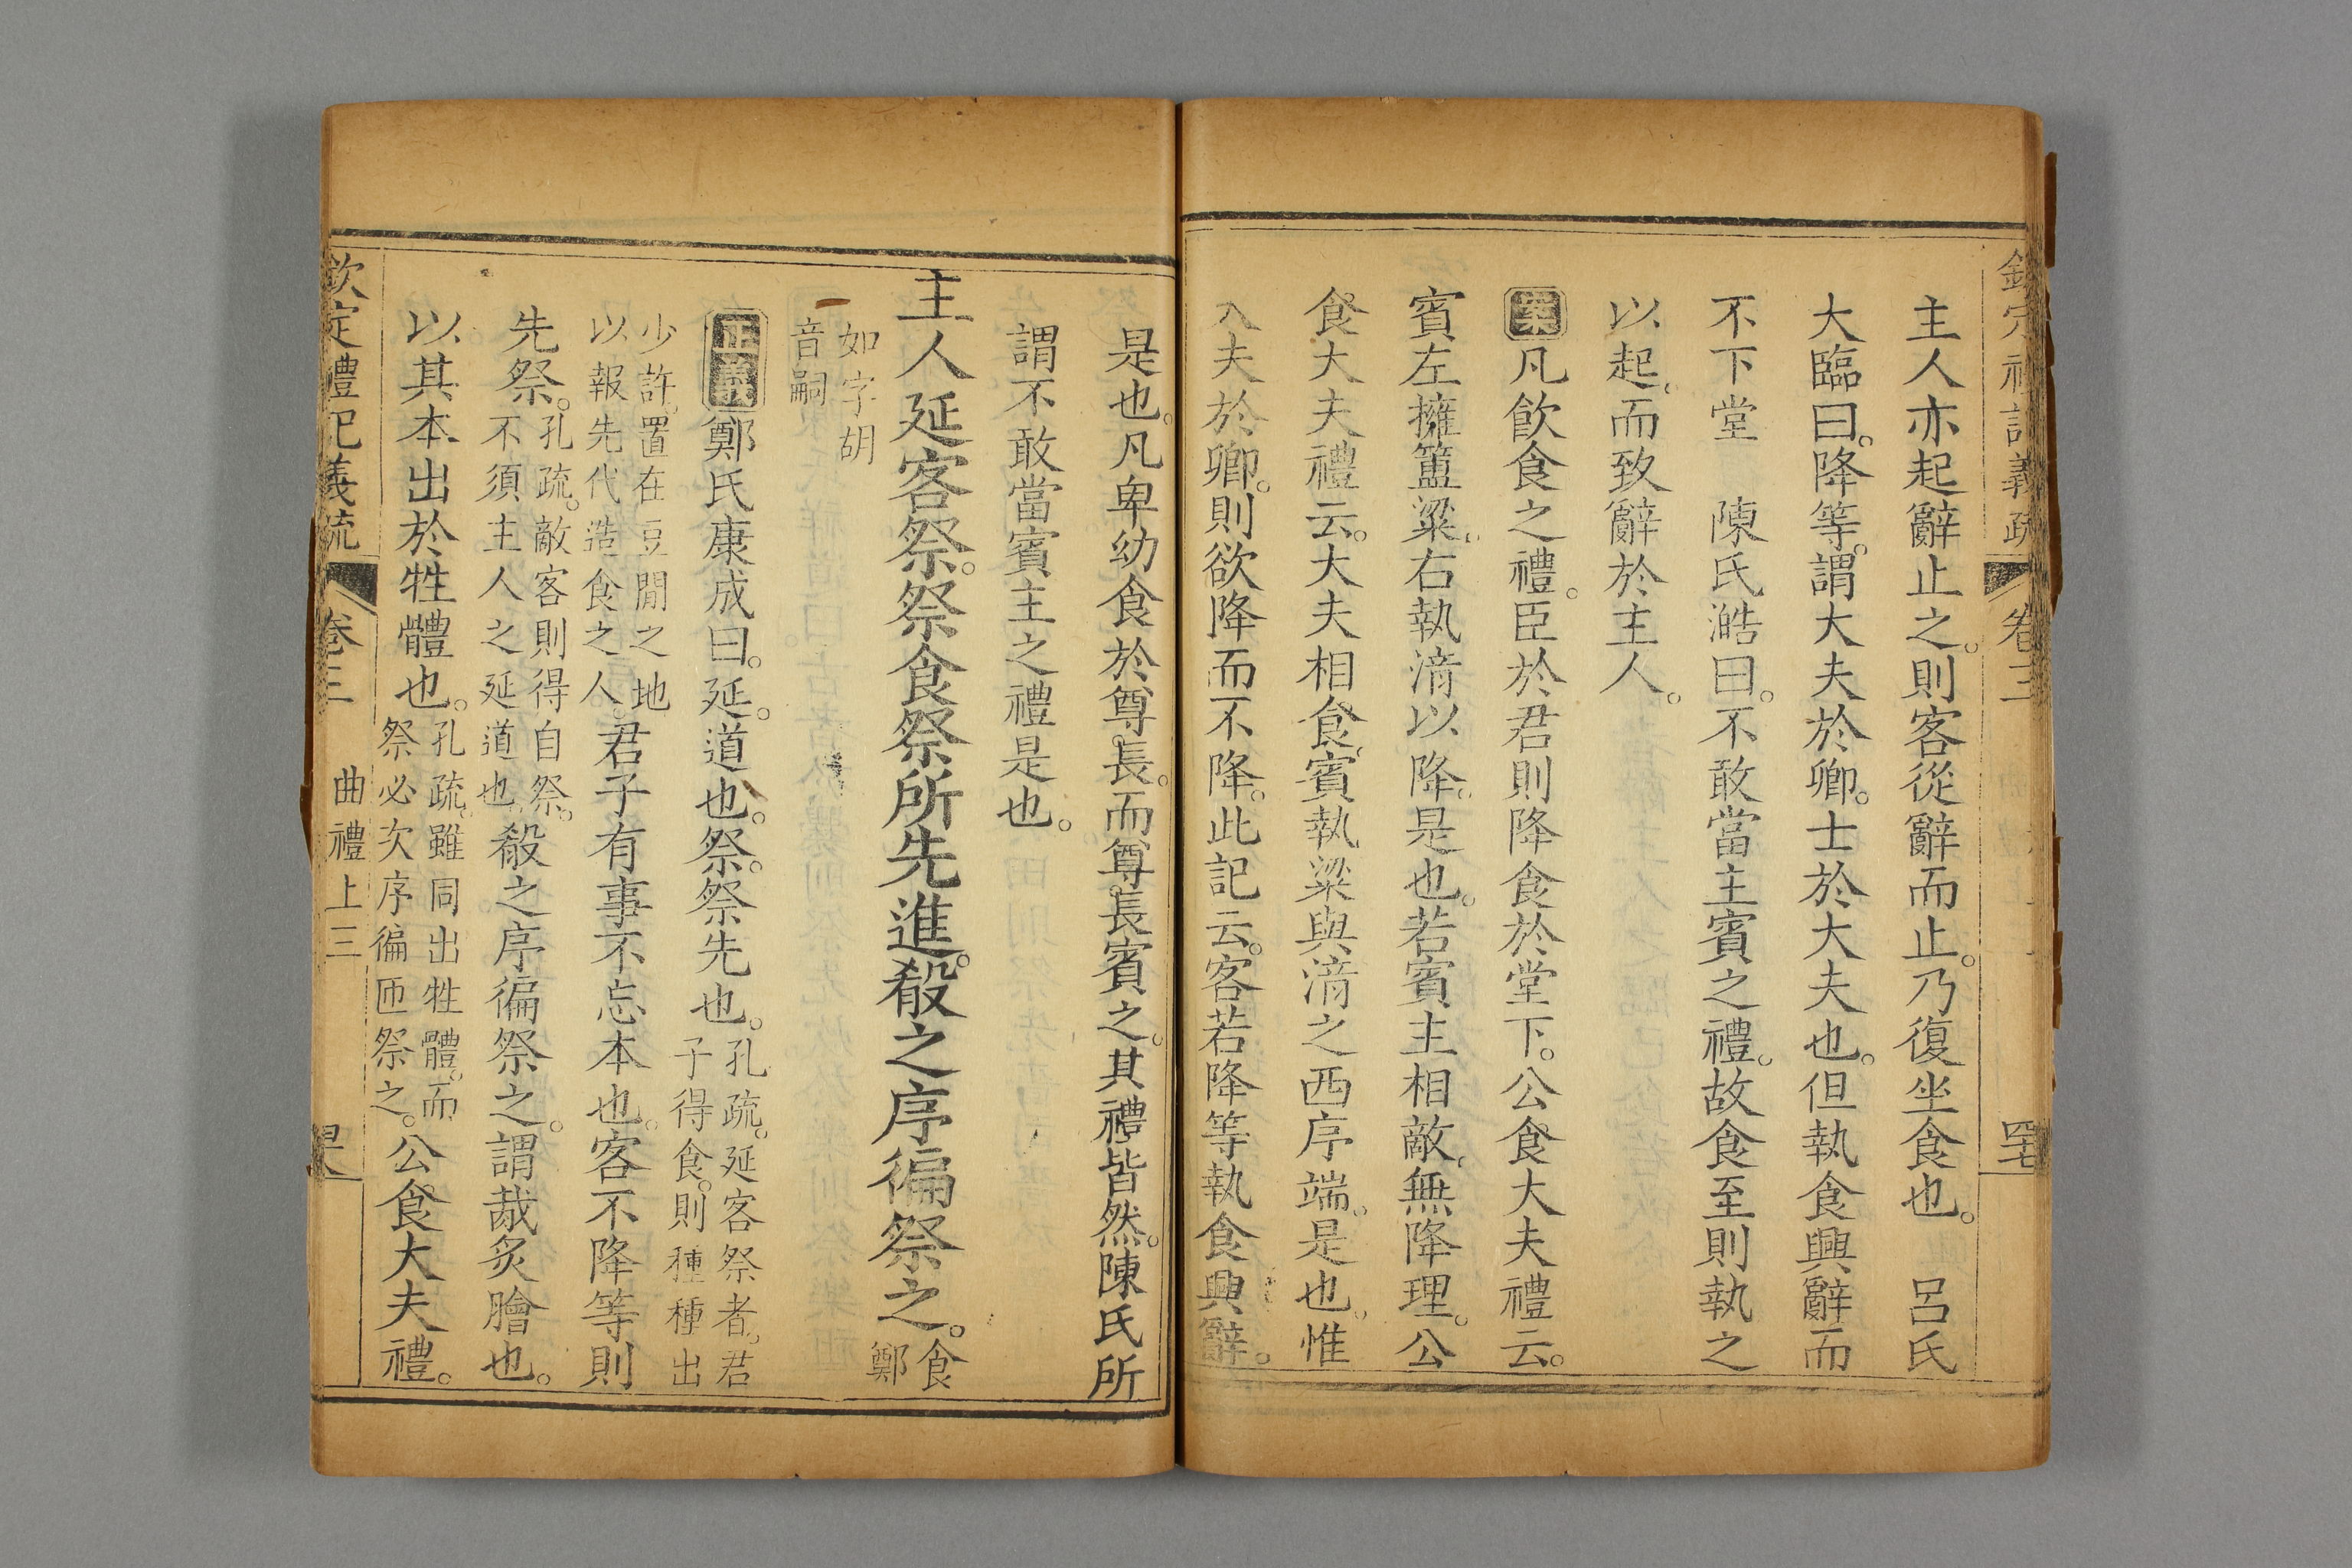 欽定禮記義疏 卷三
主人亦起辭止之。則客從辭而止。乃復坐食也。 呂氏
大臨曰。降等。謂大夫於卿。士於大夫也。但執食興辭而
不下堂 陳氏澔曰。不敢當主賓之禮。故食至則執之
以起。而致辭於主人。
案凡飲食之禮。臣於君則降食於堂下。公食大夫禮云。
賓左擁簠粱。右執湆以降。是也。若賓主相敵。無降理。公
食大夫禮云。大夫相食。賓執粱與湆之西序端。是也。惟
入夫於卿。則欲降而不降。此記云。客若降等執食興辭。
是也。凡卑幼食於尊長。而尊長賓之。其禮皆然。陳氏所
謂不敢當賓主之禮是也。
主人延客祭。祭食祭所先進。殽之序徧祭之。食
鄭
如字胡
音嗣
正義鄭氏康成曰。延。道也。祭。祭先也。孔疏。延客祭者。君
子得食。則種種出
少許。置在豆閒之地
以報先代造食之人。君子有事不忘本也。客不降等則
先祭。孔疏。敵客則得自祭。
不須主人之延道也。殽之序徧祭之。謂胾炙膾也。
以其本出於牲體也。孔疏。雖同出牲體。而
祭必次序徧匝祭之。公食大夫禮。
欽定禮記義疏 卷三 曲禮上三